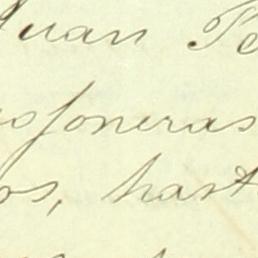 Juan Pe
soneras
os, hast